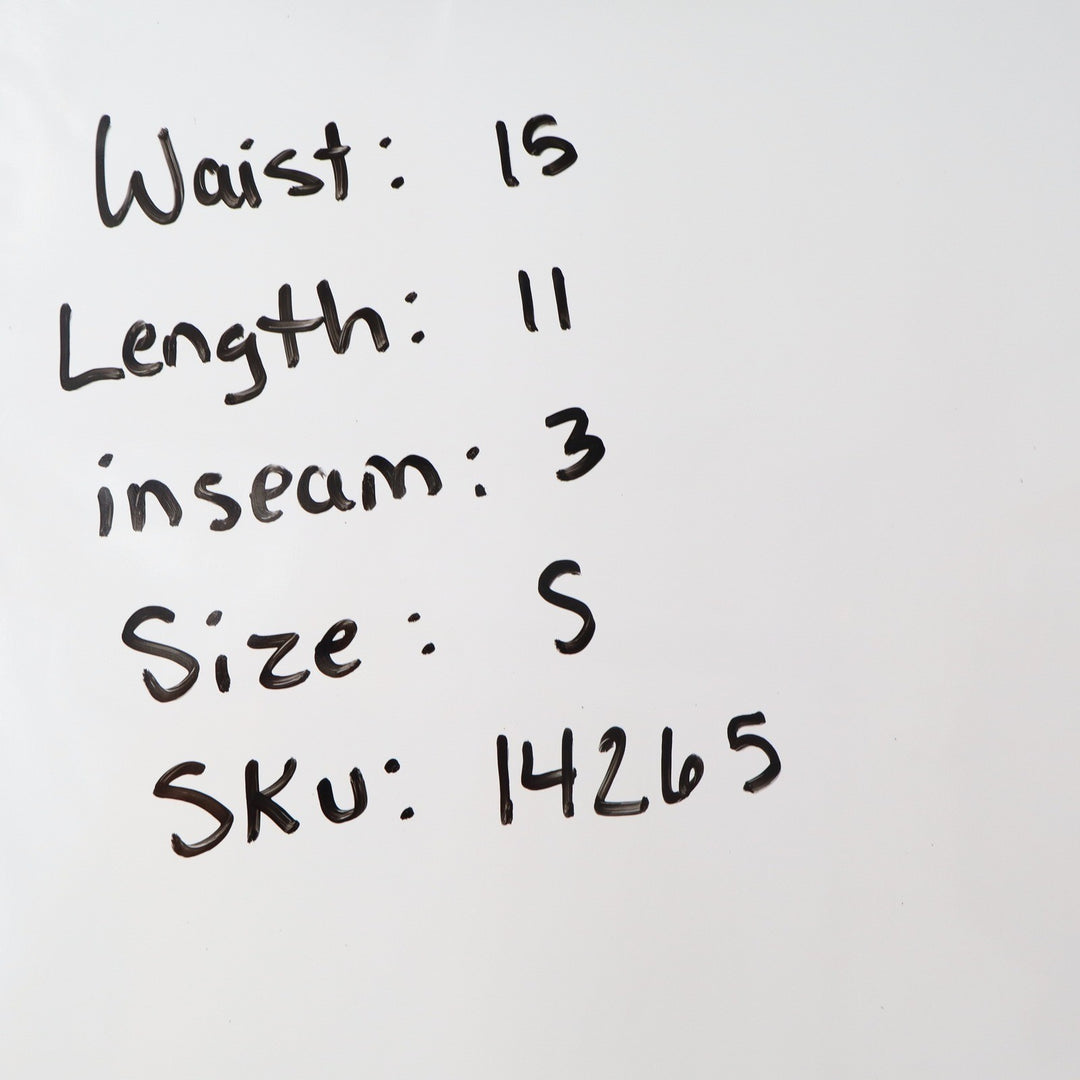 Waist: 15
Length: 11
inseam: 3
Size: S
SKU: 14265